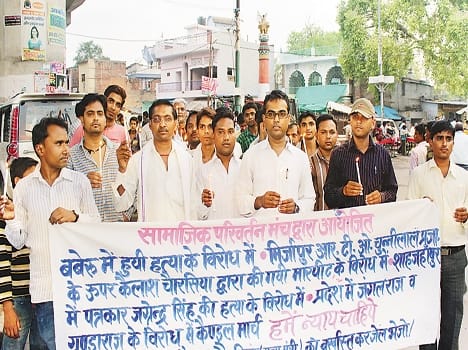 सामाजिक परिवर्तन मंच द्वारा आयोजित
बबेरू में हुयी हत्या के विरोध में • मिर्जापुर आर. टी. ओ. चुन्नीलाल प्रजा.
के ऊपर कैलाश चौरसिया द्वारा की गयी मारपीट के विरोध में • शाहजहाँपुर
में पत्रकार जगेन्द्र सिंह की हत्या के विरोध में • प्रदेश में जंगलराज व
गुण्डाराज के विरोध में कैण्डल मार्च हमें न्याय चाहिये
को बर्खास्त कर जेल भेजो!